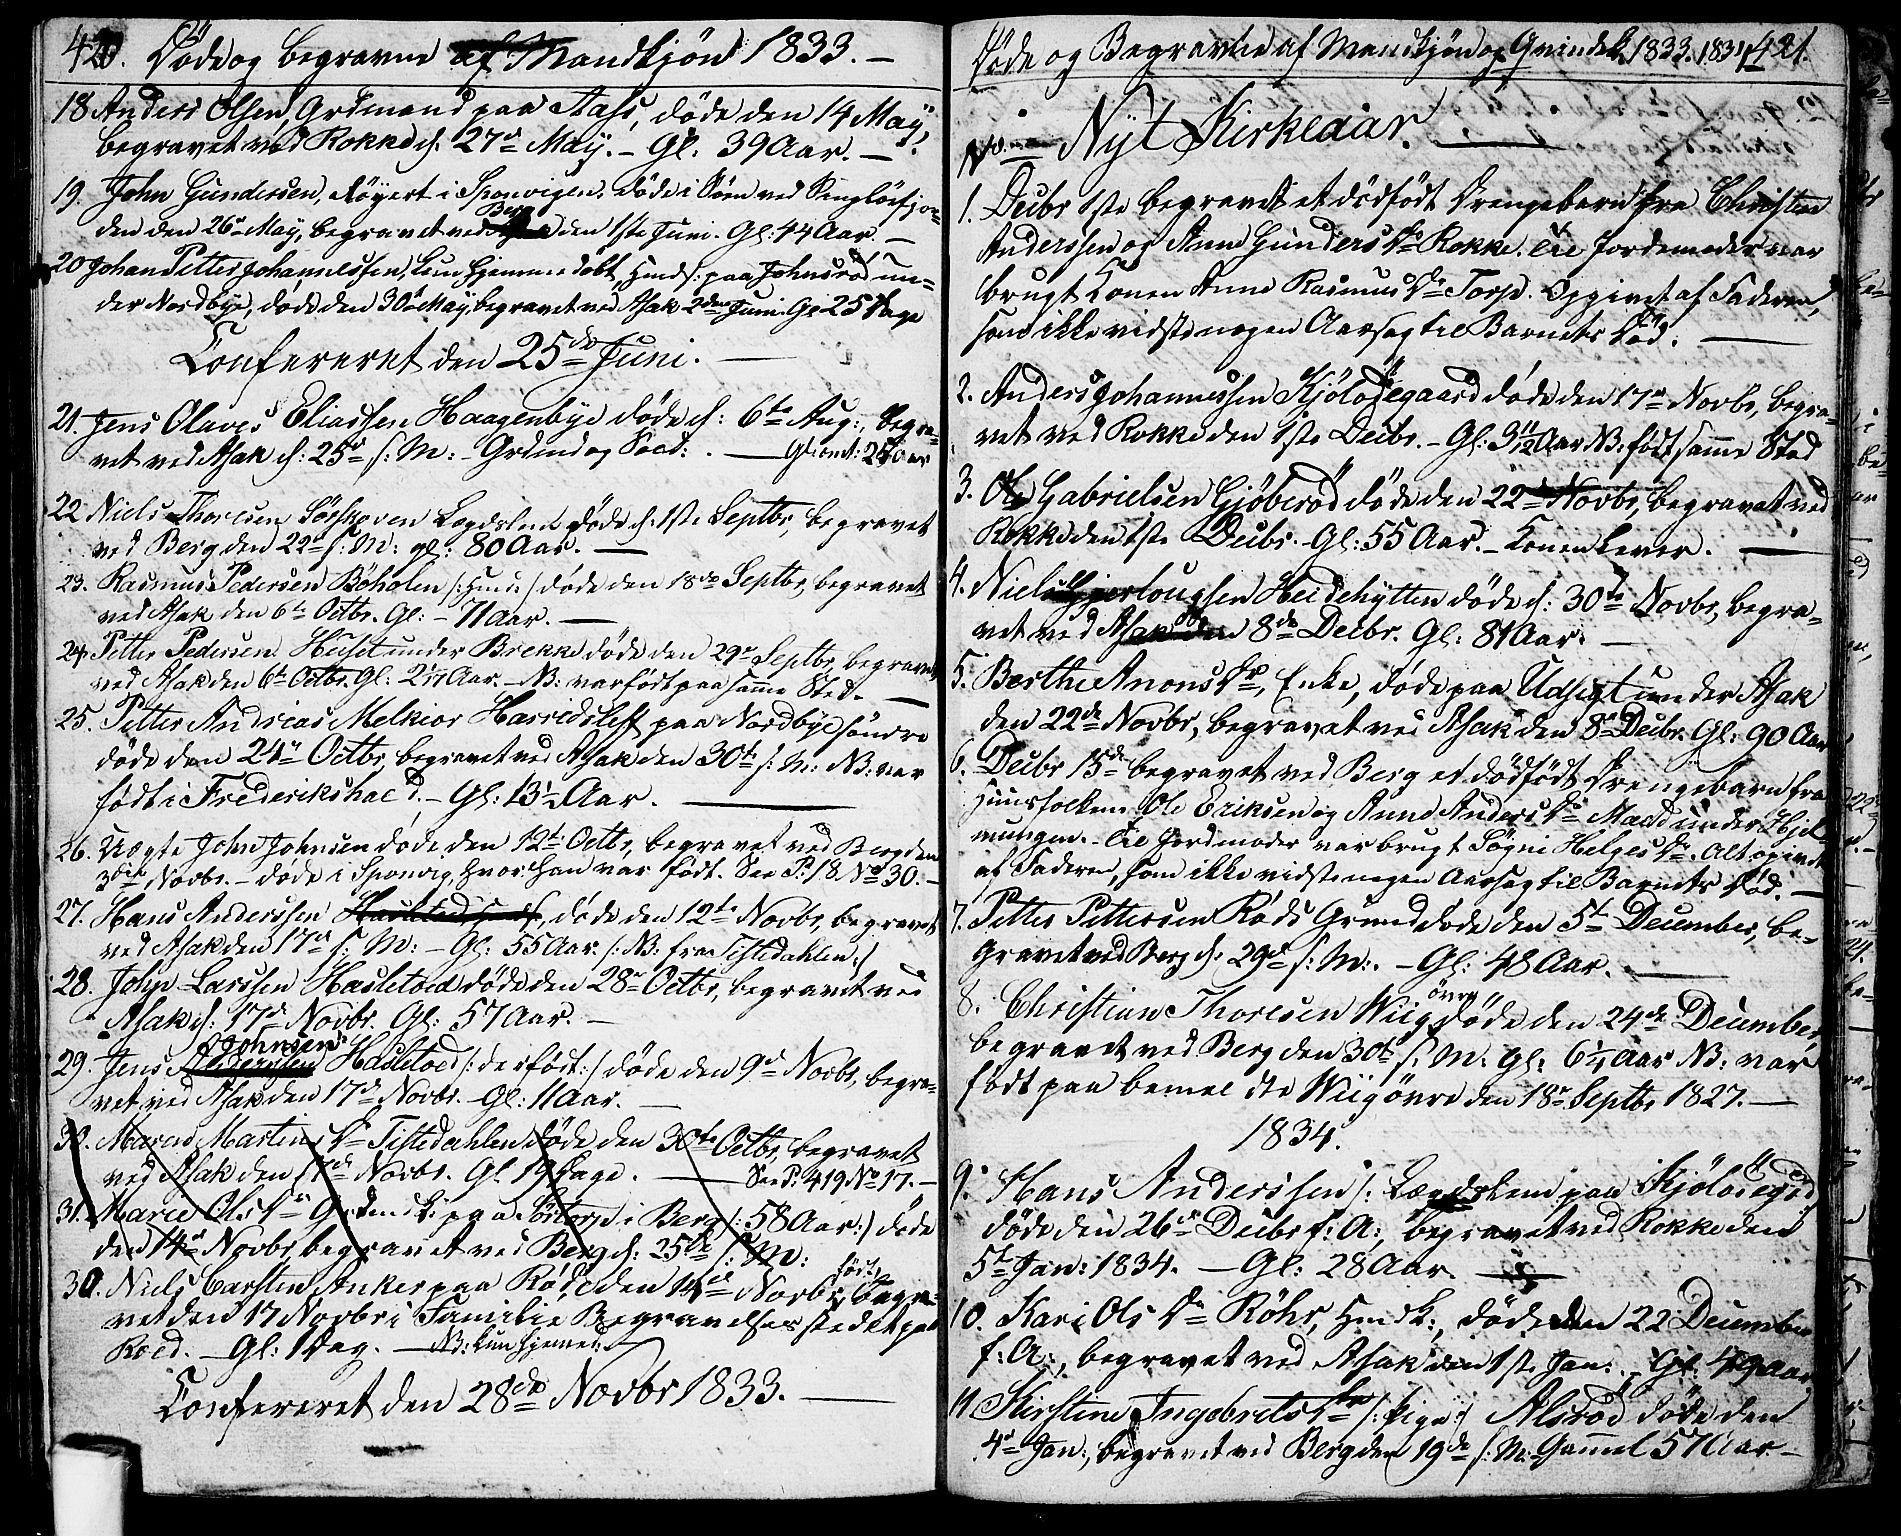 420. Døde og begravne af Mandkjøn 1833. –
18 Anders Olsen, Grdmand paa Aass, døde den 14 May,
begravet ved Rokke d: 27de May. – Gl: 39 Aar. –
19. John Gundersen, Røgert i Sponvigen, døde i Søen ved Singløefjor-
den den 26de May, begravet ved Berg den 1ste Juni. Gl: 44 Aar. –
20 Johan Petter Johannessen, kun hjemmedøbt, Hmds: paa Johnsrød un-
der Nordbye, døde den 30te May, begravet ved Asak 2den Juni. Gl 25 Dage
Confereret den 25de Juni. –
21. Jens Olaves Eliassen Haagenbye døde d: 6te Aug:, begra-
vet ved Asak d: 25de s: M: – Grdmd og Soed: . – Gl: omt: 28 Aar
22 Niels Thoresen Sørskoven Lægdslem døde d: 1ste Septbr, begravet
ved Berg den 22de s: M: gl: 80 Aar. –
23. Rasmus Pedersen Bøholen /: Hmd: / døde den 18de Septbr, begravet
ved Asak den 6te Octbr. Gl: – 71 Aar. –
24. Petter Pedersen Huset under Brekke døde den 29de Septbr, begravet
ved Asak den 6te Octbr. Gl: 2 1/4 Aar. – NB: var født paa samme Sted. –
25. Petter Andreas Melkior Harredsleff paa Nordbye søndre
døde den 24de Octbr, begravet ved Asak den 30te s: M: NB: var
født i Frederikshald. – Gl: 13 1/2 Aar. –
26. Uægte John Johnsen døde den 12te Octbr, begravet ved Berg den
3die Novbr. – døde i Sponvig, hvor han var født. See P. 18 No 30. –
27. Hans Anderssen Hasletoed Hmds, døde den 12te Novbr, begravet
ved Asak den 17de s: M: – Gl: 55 Aar. /: NB: fra Tistedahlen :/
28. John Larssen Hasletoed døde den 28de Octbr, begravet ved
Asak d: 17de Novbr. Gl: 57 Aar. –
Johnsen
29. Jens Anderssen Hasletoed /: der født :/ døde den 9de Novbr, begra-
vet ved Asak den 17de Novbr. Gl: 11 Aar. –
30. Maren Martins Dr Tistedahlen døde den 30te Octbr, begravet
ved Asak den 17de Novbr. Gl 19 Dage. – See P: 419 No 17. –
31. Marie Ols Dr Grdmdk: paa Sørtorp i Berg /: 58 Aar :/ døde
den 14de Novbr, begravet ved Berg d: 25de s: M:
30. Niels Carsten Anker paa Rød, den 14de Novbr født, begra-
vet den 17 Novbr i Familie Begravelsesstedet paa
Roed. – Gl: 1 Dag. – NB: kun hjemmed:
Confereret den 28de Novbr 1833. –
Døde og Begravne af Mandkjøn og Qvindek. 1833. 1834 421.
No. – Nyt Kirkeaar. –
1. Decbr 1ste begravet et dødfødt Drengebarn fra Christen
Anderssen og Anne Gunders Dr Rokke. Til Jordemoder var
brugt Konen Anne Rasmus Dr Torp. Opgivet af Faderen,
som ikke vidste nogen Aarsag til Barnets Død. –
2. Anders Johannessen Kjølødegaard døde den 17de Novbr, begra-
vet ved Rokke den 1ste Decbr. – Gl: 3 11/12 Aar NB: født samme Sted
3. Ole Gabrielsen Gjøberød døde den 22de Novbr, begravet ved
Rokke den 1ste Decbr. Gl: 55 Aar. – Konen lever. –
4. Niels Hjerlougsen Heedehytten døde d: 30te Novbr, begra-
vet ved Asak den 8de Decbr. Gl: 81 Aar: –
5. Berthe Anons Dr, Enke, døde paa Udsigt under Asak
den 22de Novbr, begravet ved Asak den 8de Decbr. Gl: 90 Aar
6. Decbr 15de begravet ved Berg et dødfødt Drengebarn fra
Huusfolkene Ole Eriksen og Anne Anders Dr Mæd under Hjel-
mungen. – Til Jordmoder var brugt Søgni Helges Dr. Alt opgivet
af Faderen, som ikke vidste nogen Aarsag til Barnets Død. –
7. Petter Pettersen Røds Grund døde den 5te December, be-
gravet ved Berg d: 29de s: M: – Gl: 48 Aar. –
8. Christian Thoresen Wiig øvre døde den 24de December,
begravet ved Berg den 30te s: M. Gl: 6 1/4 Aar NB: var
født paa bemeldte Wiig øvre den 18de Septbr 1827. –
1834.
9. Hans Anderssen /: Lægdslem paa Kjølødegrd
døde den 26de Decbr f: A:, begravet ved Rokke den
5te Jan: 1834. – Gl: 28 Aar. –
10. Kari Ols Dr Røhr, Hmdk:, døde den 22 December
f: A:, begravet ved Asak den 1ste Jan: – Gl: 49 Aar.
11 Kirstine Ingebrets Dr /: Pige :/ Alsrød døde den
4de Jan:, begravet ved Berg den 19de s: M: Gammel 57 Aar –